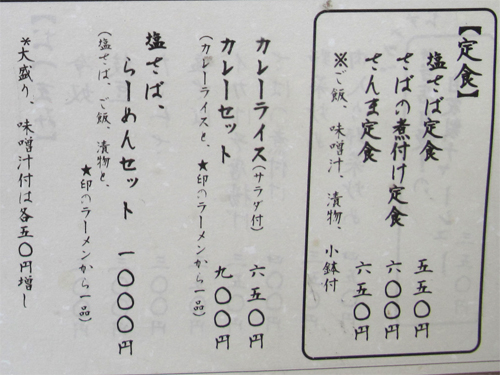 【定食】
塩さば定食 五五〇円
さばの煮付け定食 六〇〇円
さんま定食 六五〇円
※ご飯、味噌汁、漬物、小鉢付
カレーライス(サラダ付) 六五〇円
カレーセット 九〇〇円
(カレーライスと、★印のラーメンから一品)
塩さば、
らーめんセット 一〇〇〇円
(塩さば、ご飯、漬物と、★印のラーメンから一品)
*大盛り、味噌汁付は各五〇円増し